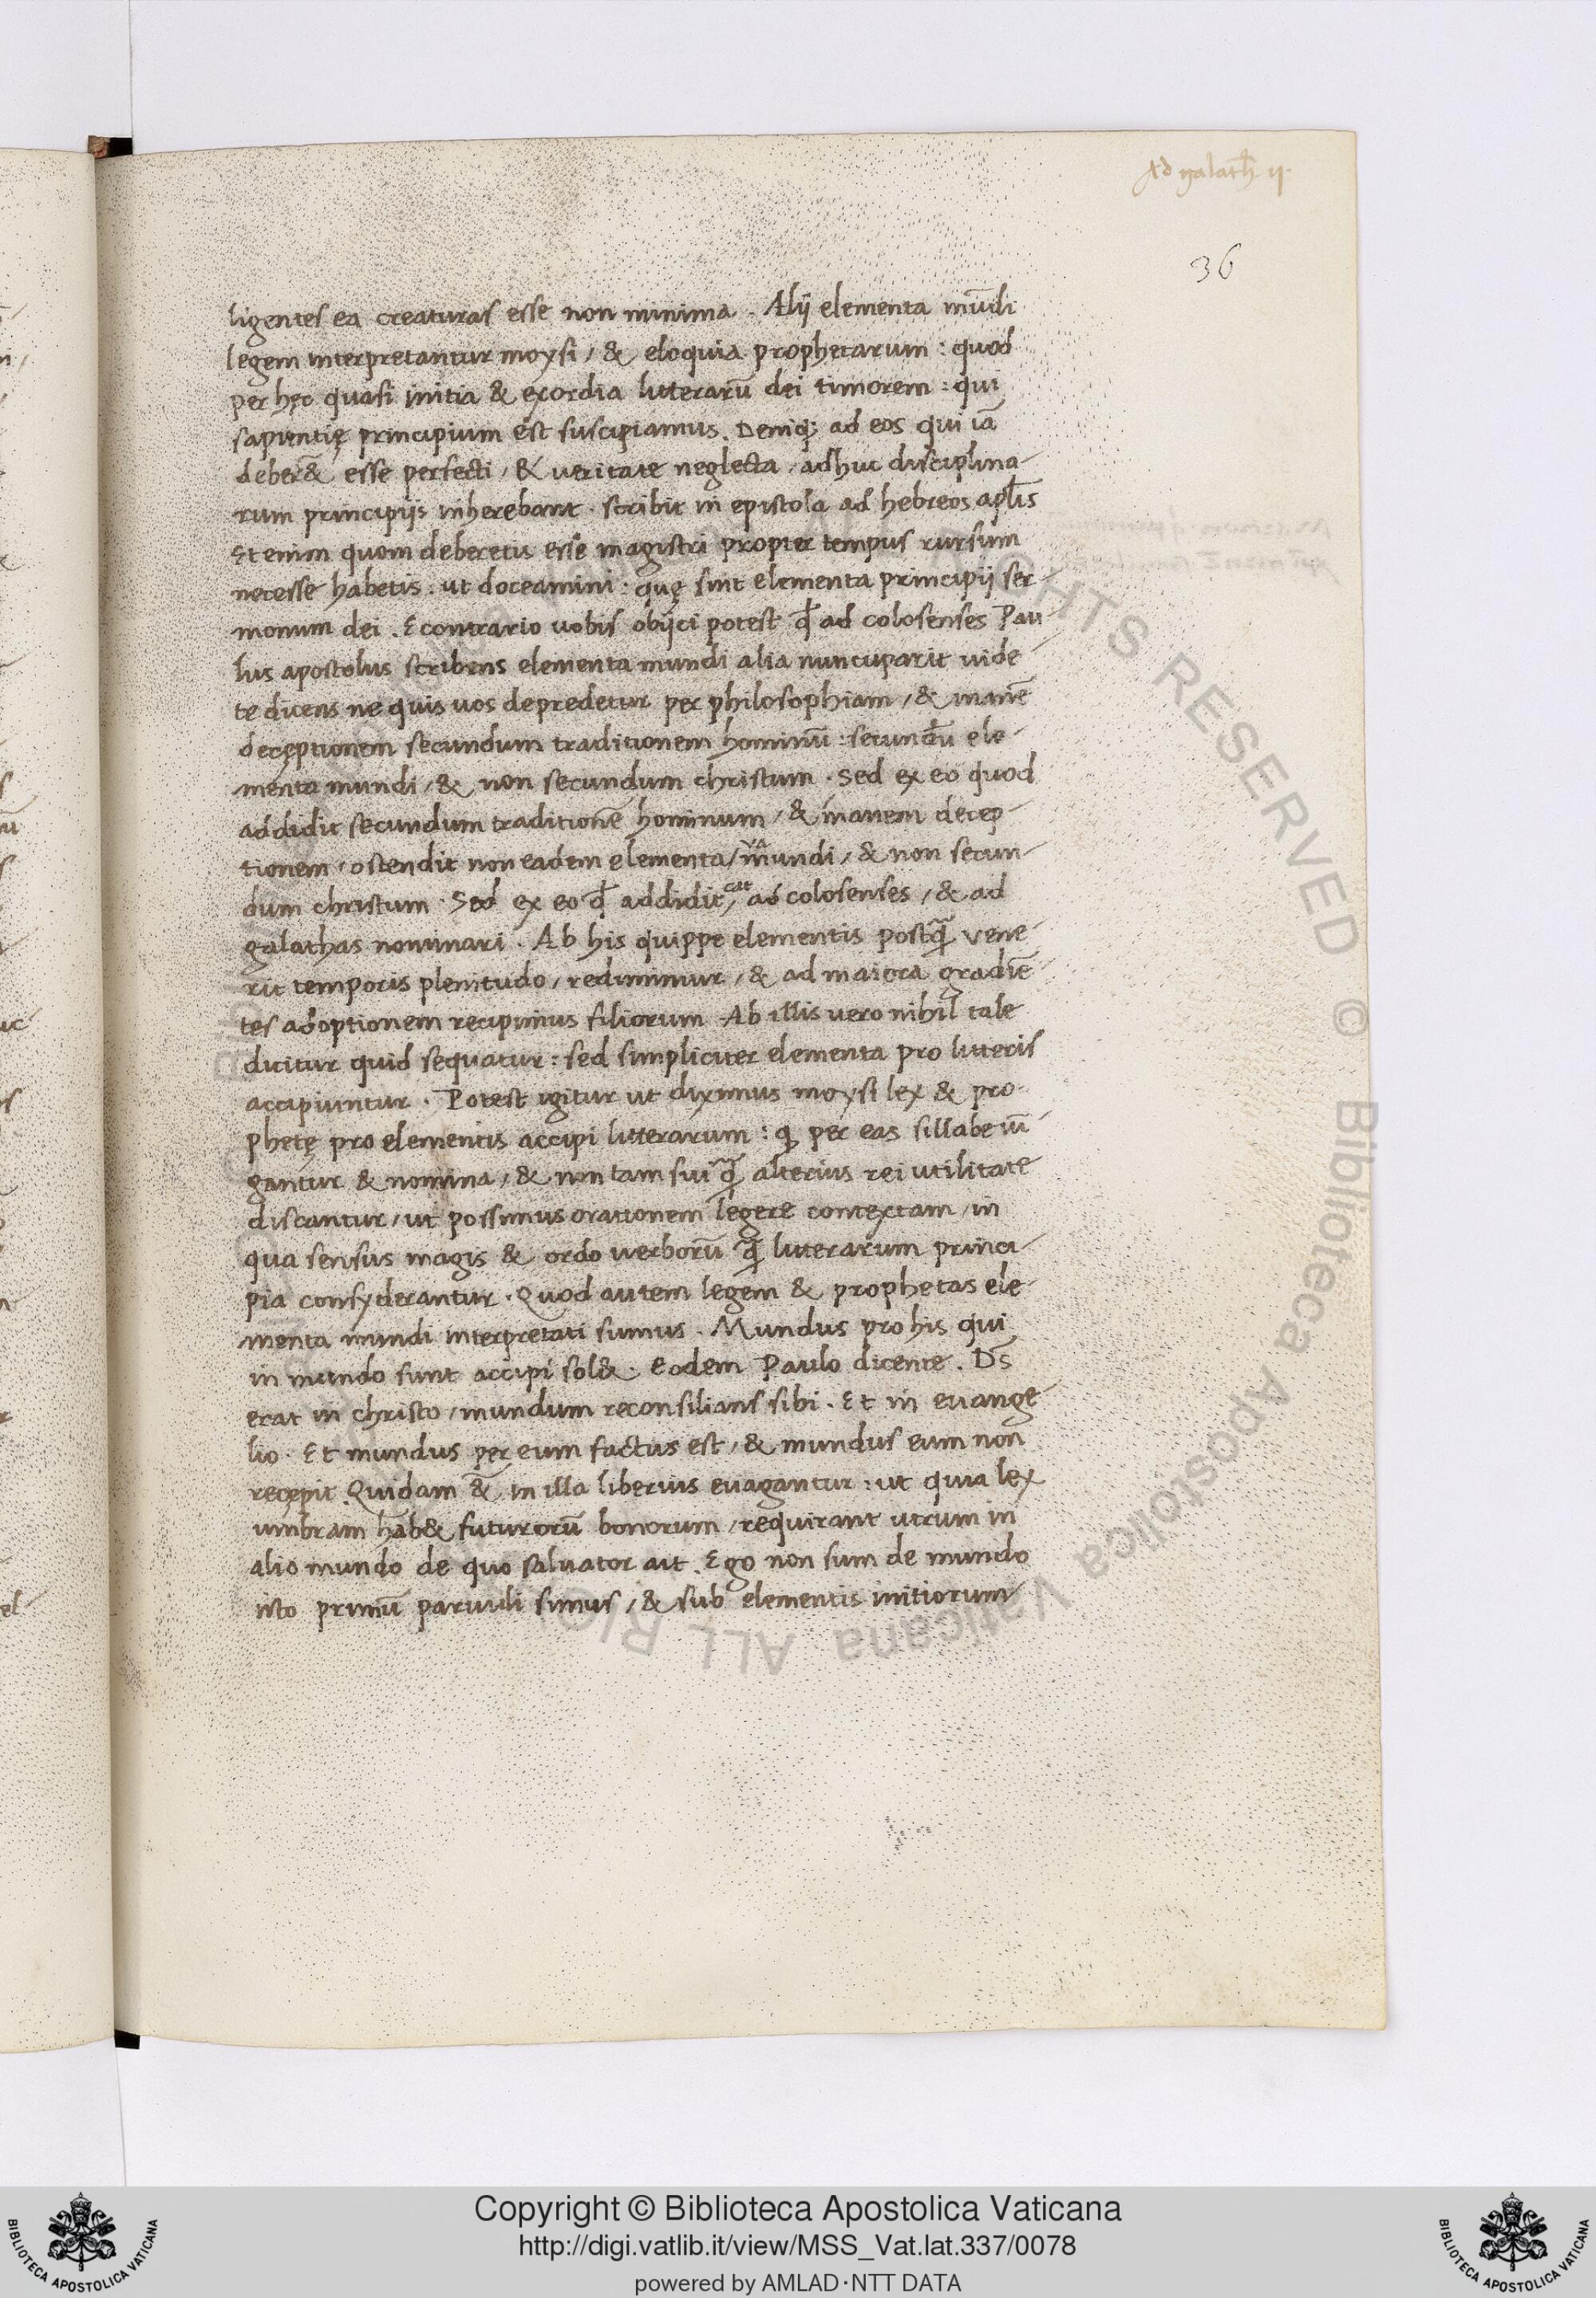 Ad galath̄ ij.
36
ligentes ea creaturas esse non minima. Alij elementa mūdi
legem interpretantur moysi, & eloquia prophetarum: quod
per hęc quasi initia & exordia litterarū dei timorem: qui
sapientię principium est suscipiamus. Deniq; ad eos qui iā
deber&̄ esse perfecti, & veritate neglecta, adhuc disciplina-
rum principijs inherebant. scribit in epistola ad hebreos apl̄s
Et enim quom deberetis esse magistri propter tempus rursum
necesse habetis: ut doceamini: quę sint elementa principij ser-
monum dei. Econtrario uobis obijci potest qđ ad colosenses Pau
lus apostolus scribens elementa mundi alia nuncuparit uide
te dicens ne quis uos depredetur per philosophiam, & inanē
deceptionem secundum traditionem hominū: secundū ele-
menta mundi, & non secundum christum. Sed ex eo quod
addidit secundum traditionē hominum, & inanem decep-
tionem, ostendit non eadem elementa, mundi, & non secun-
dum christum. Sed ex eo qđ addidit, ad colosenses, & ad
galathas nominari. Ab his quippe elementis postq̄ vene-
rit temporis plenitudo, redimimur, & ad maiora gradiē-
tes adoptionem recipimus filiorum. Ab illis vero nihil tale
dicitur quid sequatur: sed simpliciter elementa pro litteris
accipiuntur. Potest igitur ut diximus moysi lex & pro-
phetę pro elementis accipi litterarum: q; per eas sillabe iū-
gantur & nomina, & non tam sui q̄ alterius rei utilitate
discantur, ut possimus orationem legere contextam, in
qua sensus magis & ordo uerborū q̄ litterarum princi-
pia consyderantur. Quod autem legem & prophetas ele-
menta mundi interpretati sumus. Mundus pro his qui
in mundo sunt accipi sol&. Eodem Paulo dicente. Ds̄
erat in christo, mundum reconsilians sibi. Et in euange-
lio. Et mundus per eum factus est, & mundus eum non
recepit. Quidam &̄ in illa liberius euagantur: ut quia lex
umbram hab& futurorū bonorum, requirant utrum in
alio mundo de quo saluator ait. Ego non sum de mundo
isto primū paruuli simus, & sub elementis initiorum
Copyright © Biblioteca Apostolica Vaticana
http://digi.vatlib.it/view/MSS_Vat.lat.337/0078
powered by AMLAD·NTT DATA
BIBLIOTECA APOSTOLICA VATICANA
BIBLIOTECA APOSTOLICA VATICANA